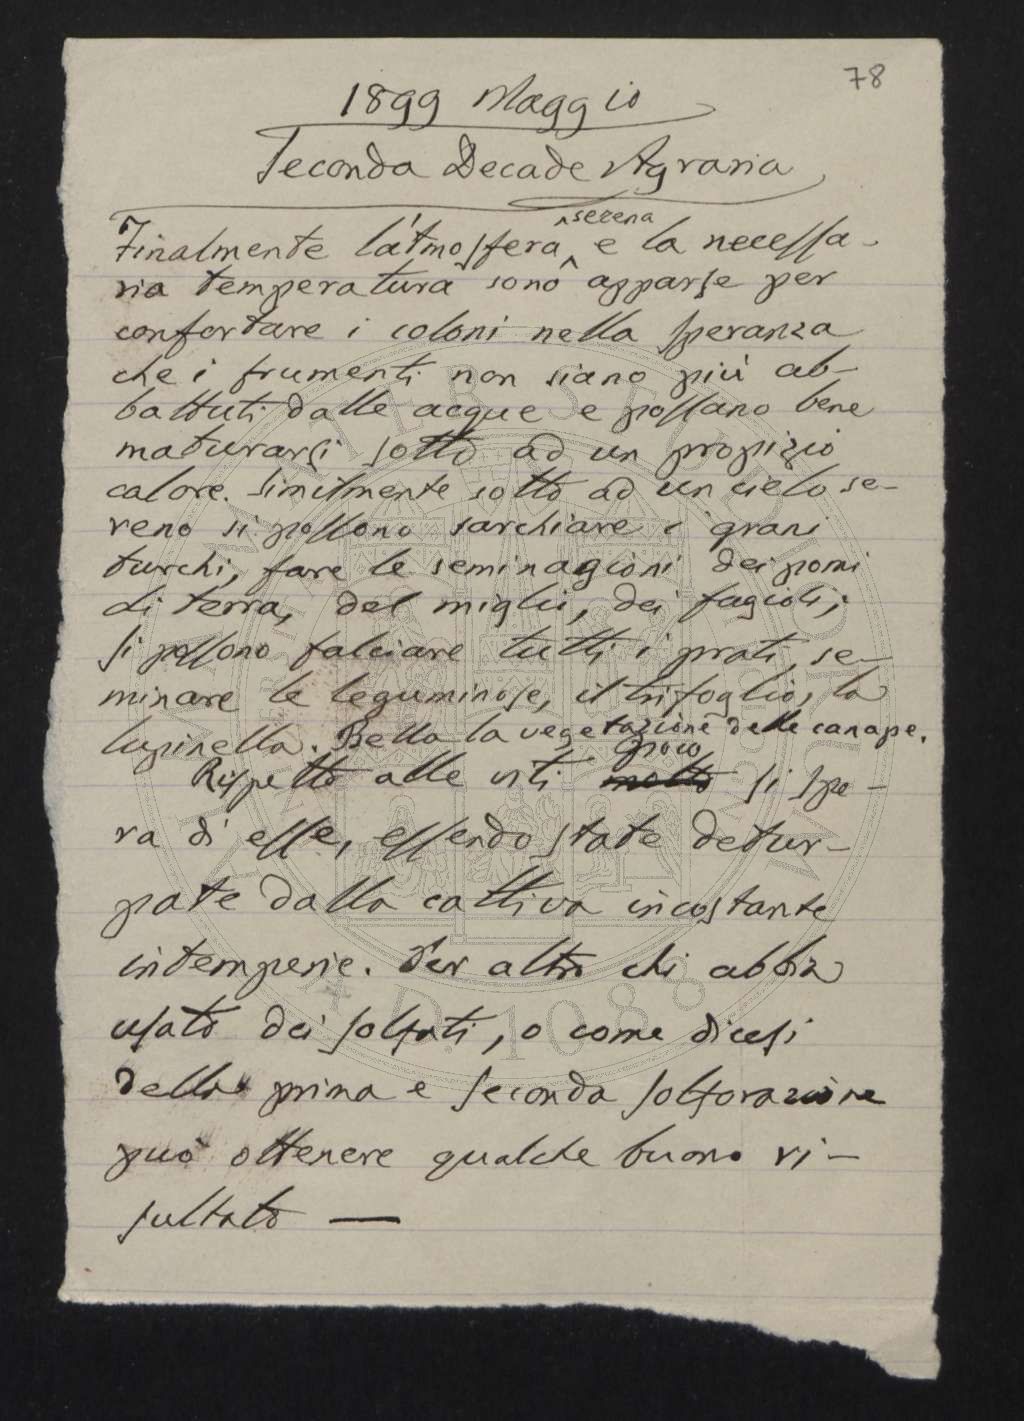 78
1899 Maggio
Seconda Decade Agraria
Finalmente l'atmosfera serena e la necessa-
ria temperatura sono apparse per
confortare i coloni nella speranza
che i frumenti non siano più ab-
battuti dalle acque e possano bene
maturarsi sotto ad un propizio
calore. Similmente sotto ad un cielo se-
reno si possono sarchiare i grani
turchi, fare le seminagioni dei pomi
di terra, del miglio, dei fagioli;
si possono falciare tutti i prati, se-
minare le leguminose, il trifoglio, la
lupinella. Bella la vegetazione delle canape.
Rispetto alle viti molto poco si spe-
ra di esse, essendo state detur-
pate dalla cattiva incostante
intemperie. Per altro chi abbia
usato dei solfati, o come dicesi
della prima e seconda solforazione
può ottenere qualche buono ri-
sultato —
ALMA MATER STUDIORUM
A.D. 1088